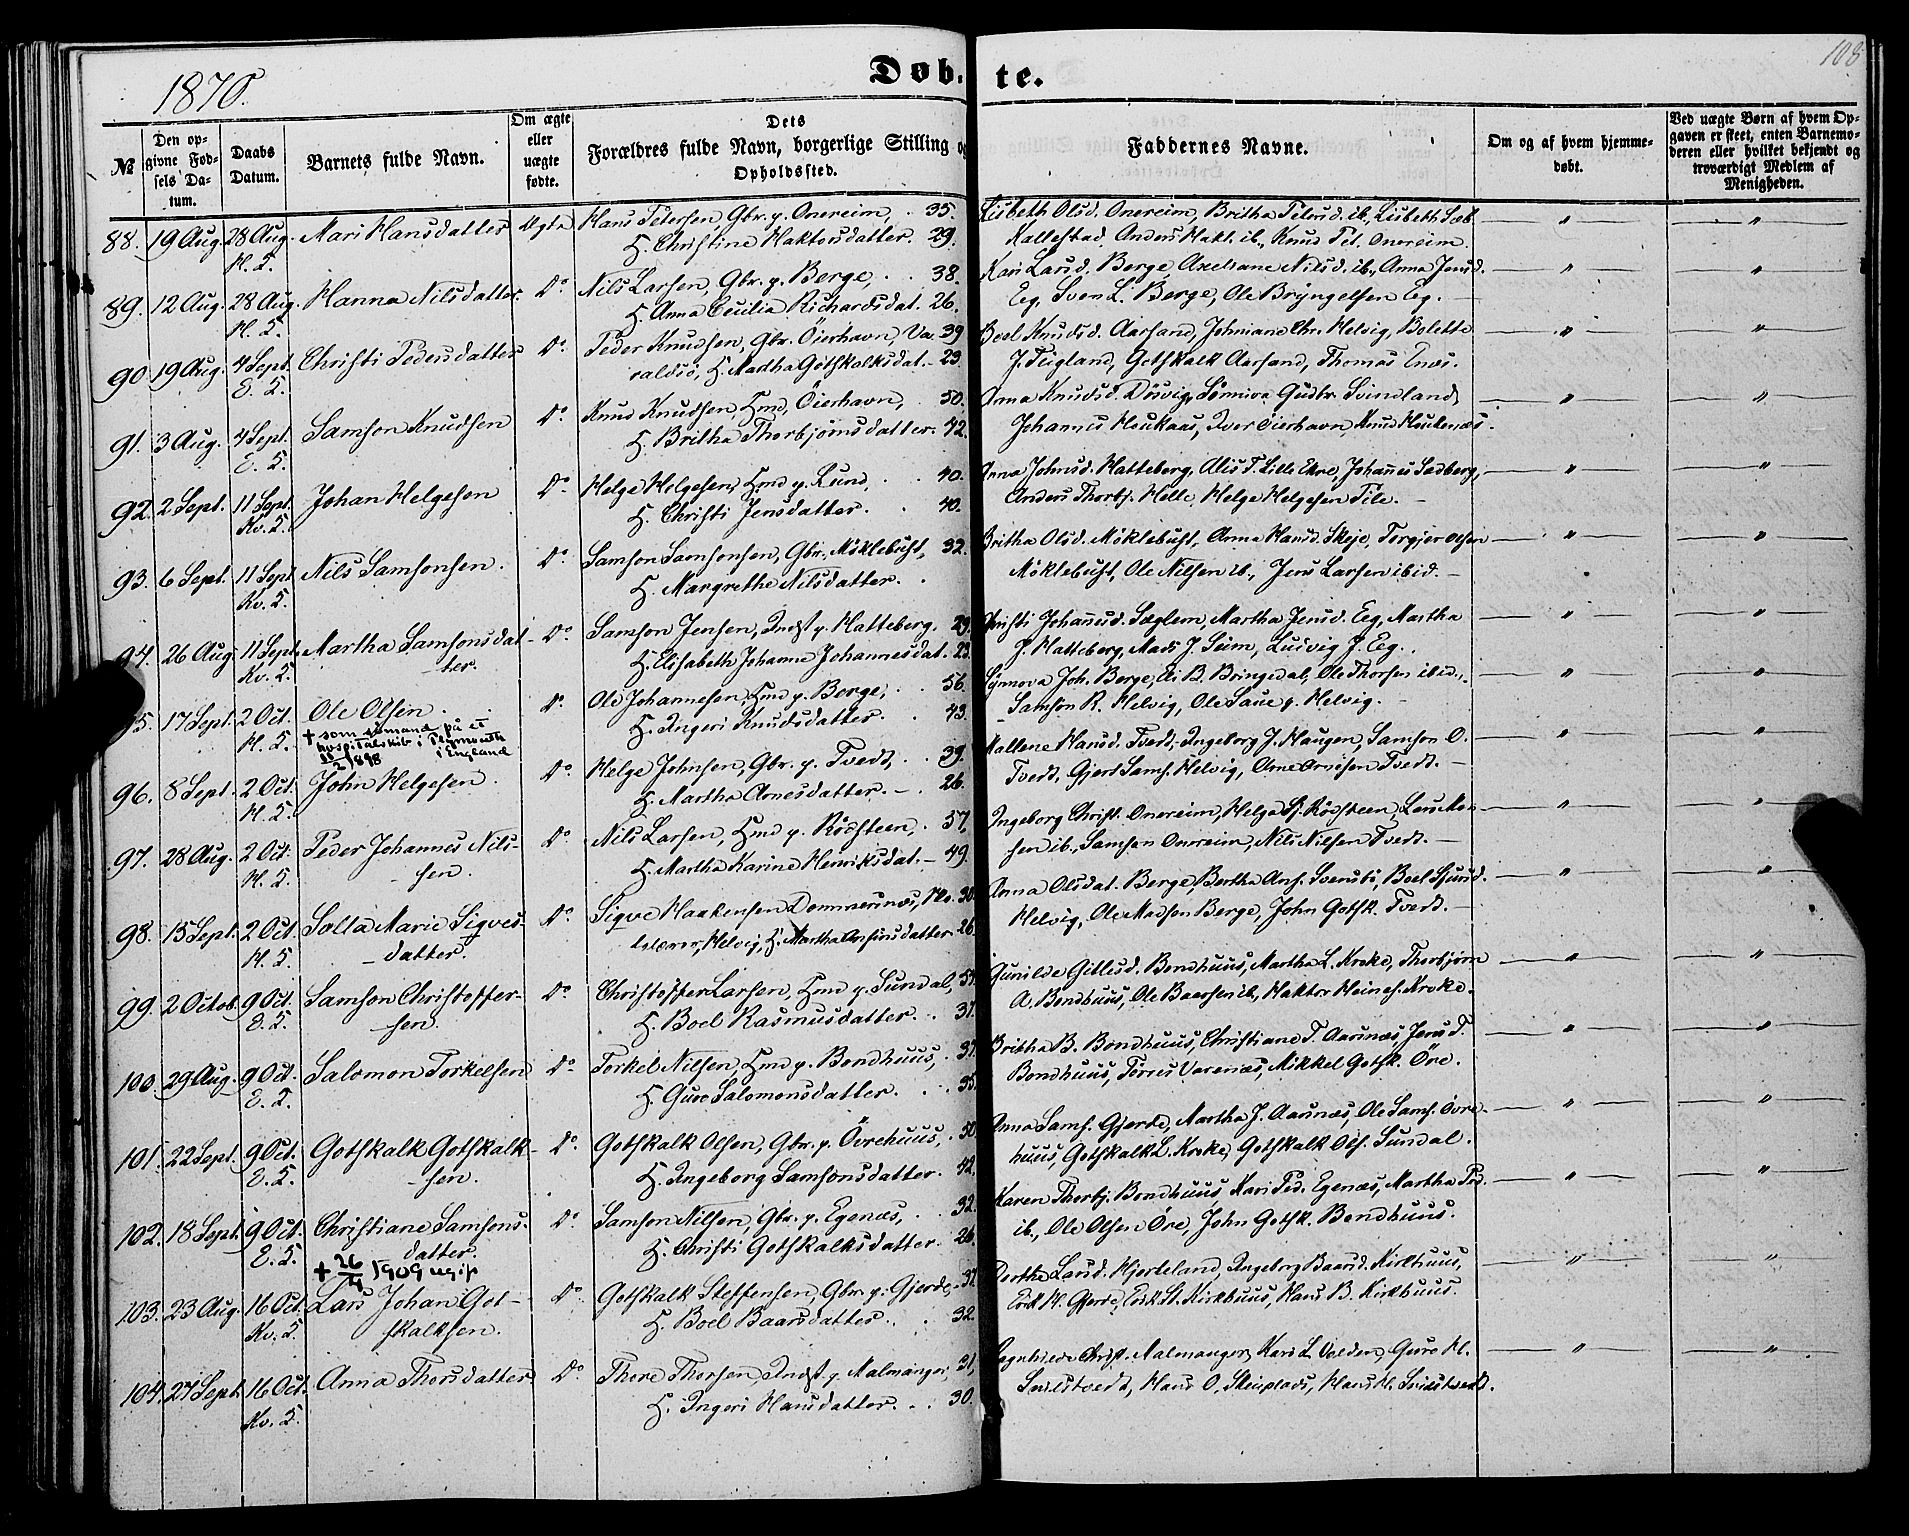 1870.
Döb-
te.
108
№
Den op-
givne Fød-
sels Da-
tum.
Daabs
Datum.
Barnets fulde Navn.
Om ægte
eller
uægte
fødte.
Dets
Forældres fulde Navn, borgerlige Stilling og
Opholdssted.
Faddernes Navne.
Om og af hvem hjemme-
døbt.
Ved uægte Børn af hvem Op-
gaven er skeet, enten Barnemo-
deren eller hvilket bekjendt og
troværdigt Medlem af
Menigheden.
88. 19 Aug. 28 Aug. H. S. Mari Hansdatter Ægte
Hans Petersen Gbr. p. Onereim, 35.
H. Christine Haktorsdatter. 29.
Lisbeth Olsd. Onereim, Britha Petersd. ib., Lisbeth Seb.
Kallestad, Anders Hakt. ib., Knud Pet. Onereim.
89. 12 Aug. 28 Aug. H. S. Hanna Nilsdatter. Do
Nils Larsen, Gbr. p. Berge, 38.
H. Anna Cecilia Richardsdat. 26.
Kari Larsd. Berge, Axeliane Nilsd. ib., Anna Jensd.
Eg, Sven L. Berge, Ole Bryngelsen Eg.
90. 19 Aug. 4 Sept. E. S. Christi Pedersdatter Do
Peder Knudsen, Gbr. Öierhavn, Va- 39
raldsö, H. Martha Gotskalksdat. 23
Boel Knudsd. Aarsand, Johniane Chr. Helvig, Bolette
J. Teigland, Gotskalk Aarsand, Thomas Enes.
91. 3 Aug. 4 Sept. E. S. Samson Knudsen Do
Knud Knudsen, Hmd, Öierhavn, 50.
H. Britha Thorbjørnsdatter. 42.
Anna Knudsd. Dösvig, Sönniva Gudbr. Svindland,
Johannes Haukaas, Iver Öierhavn, Knud Haukenæs.
92. 2 Sept. 11 Sept. Kv. S. Johan Helgesen Do
Helge Helgesen, Hmd p. Lund, 40.
H. Christi Jensdatter. 40.
Anna Johnsd. Hatteberg, Alis T. Lille Ekre, Johannes Sedberg,
Anders Thorbj. Helle, Helge Helgesen File.
93. 6 Sept. 11 Sept Kv. S. Nils Samsonsen. Do
Samson Samsonsen, Gbr. Möklebust, 32.
H. Margrethe Nilsdatter.
Britha Olsd. Möklebust, Anna Hansd. Skeje, Torgjer Olsen
Möklebust, Ole Nilsen ib., Jens Larsen ibid.
94. 26 Aug. 11 Sept. Kv. S. Martha Samsonsdat-
ter. Do
Samson Jensen, Indst p. Hatteberg. 29.
H. Elisabeth Johanne Johannesdat. 23.
Christi Johannsd. Sæglem, Martha Jensd. Eg, Martha
J. Hatteberg, Mads J. Seim, Ludvig J. Eg.
95. 17 Sept. 2 Oct. H. S. Ole Olsen. Do
+ som sömand på et
hospitalskib i Plymouth
10/2 1898 i England
Ole Johannesen, Hmd p. Berge, 56.
H. Ingeri Knudsdatter. 43.
Synnova Joh. Berge, Eli B. Bringedal, Ole Thorsen ibid.,
Samson R. Helvig, Ole Saue p. Helvig.
96. 8 Sept. 2 Oct. H. S. John Helgesen. Do
Helge Johnsen, Gbr. p. Tvedt, 39.
H. Martha Arnesdatter. 26.
Mallene Hansd. Tvedt, Ingeborg J. Haugen, Samson O.
Tvedt, Gjert Sams. Helvig, Arne Arnesen Tvedt.
97. 28 Aug. 2 Oct. H. S. Peder Johannes Nils-
sen. Do
Nils Larsen, Hmd p. Rödsteen, 57,
H. Martha Karine Henriksdat. 49.
Ingeborg Christ. Onereim, Helga Sj. Rödsteen, Lars Mon-
sen ib., Samson Onereim, Nils Nilsen Tvedt.
98. 15 Sept. 2 Oct. H. S. Salla Marie Sigves-
datter. Do
Sigve Haakensen Dommersnæs, Sko- 30.
lelærer, Helvig, H. Martha Amsinsdatter. 26.
Anna Olsdat. Berge, Bertha Ans. Svensbö, Boel Sjursd.
Helvig, Ole Madsen Berge, John Gotsk. Tvedt.
99. 2 Octob. 9 Oct. E. S. Samson Christoffer-
sen. Do
Christoffer Larsen, Hmd p. Sundal, 54.
H. Boel Rasmusdatter. 37.
Gunilde Gitlesd. Bondhuus, Martha L. Kroke, Thorbjörn
A. Bondhuus, Ole Baarsen ib., Haktor Heines. Kroke.
100. 29 Aug. 9 Oct. E. S. Salomon Torkelsen Do
Torkel Nilsen, Hmd p. Bondhuus, 37.
H. Guro Salomonsdatter. 35.
Britha B. Bondhuus, Christiane T. Aarsnæs, Jens T.
Bondhuus, Torres Varenæs, Mikkel Gotsk. Öre.
101. 22 Sept. 9 Oct. E. S. Gotskalk Gotskalk-
sen. Do
Gotskalk Olsen, Gbr. p. Övrehuus, 50.
H. Ingeborg Samsonsdatter. 42.
Anna Sams. Gjerde, Martha J. Aarsnæs, Ole Sams. Övre-
huus, Gotskalk L. Kroke, Gotskalk Ols. Sundal.
102. 18 Sept. 9 Oct. E. S. Christiane Samsons-
datter. Do
+ 26/4 1909 ugift
Samson Nilsen, Gbr. p. Egenæs, 32.
H. Christi Gotskalksdatter. 26.
Karen Thorbj. Bondhuus, Kari Ped. Egenæs, Martha Ped.
ib., Ole Olsen Öre, John Gotsk. Bondhuus.
103. 23 Aug. 16 Oct. Kv. S. Lars Johan Got-
skalksen. Do
Gotskalk Steffensen, Gbr. p. Gjerde, 37
H. Boel Baarsdatter. 32.
Dorthe Larsd. Hjerteland, Ingeborg Baarsd. Kirkhuus,
Erik H. Gjerde, Erik St. Kirkhuus, Hans B. Kirkhuus.
104. 27 Sept. 16 Oct. Kv. S. Anna Thorsdatter Do
Thore Thorsen, Indst p. Malmanger, 31,
H. Ingeri Hansdatter. 30.
Ragnhilde Christ. Malmanger, Kari L. Volden, Guro H.
Snilstvedt, Hans O. Skeiplads, Hans H. Snilstvedt.